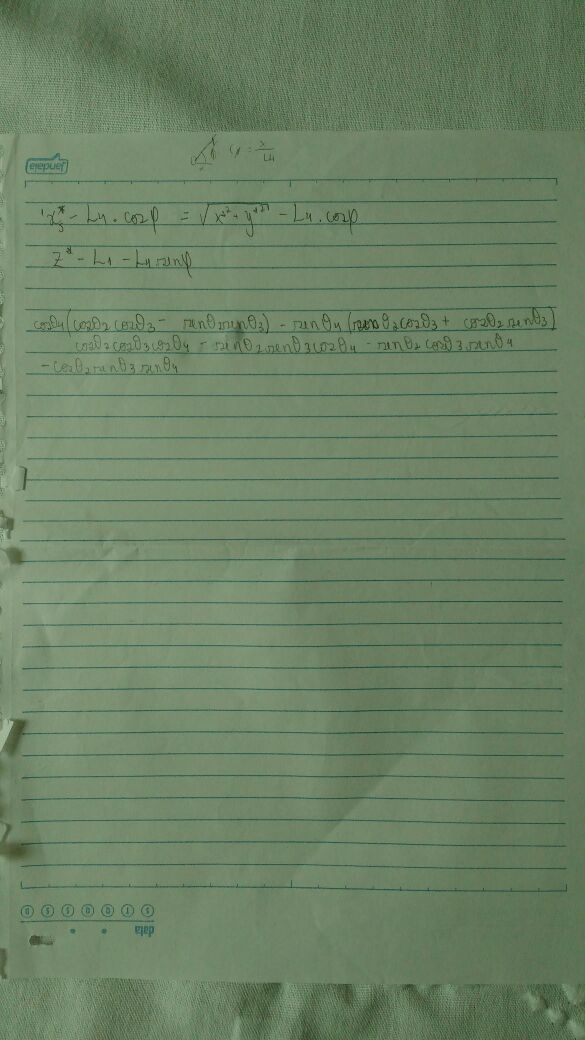 jandaia
Cφ = x/L4
¹x₃* - L4 . cosφ = √(x*² + y*²) - L4 . cosφ
z* - L1 - L4 senφ
cosθ4(cosθ2 cosθ3 - senθ2 senθ3) - senθ4 (senθ2 cosθ3 + cosθ2 senθ3)
cosθ2 cosθ3 cosθ4 - senθ2 senθ3 cosθ4 - senθ2 cosθ3 senθ4
- cosθ2 senθ3 senθ4
S T Q Q S S D
data